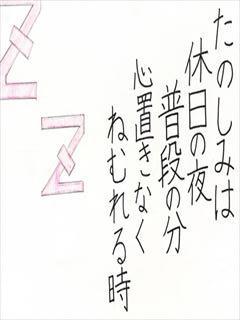 たのしみは
休日の夜
普段の分
心置きなく
ねむれる時
Z
Z